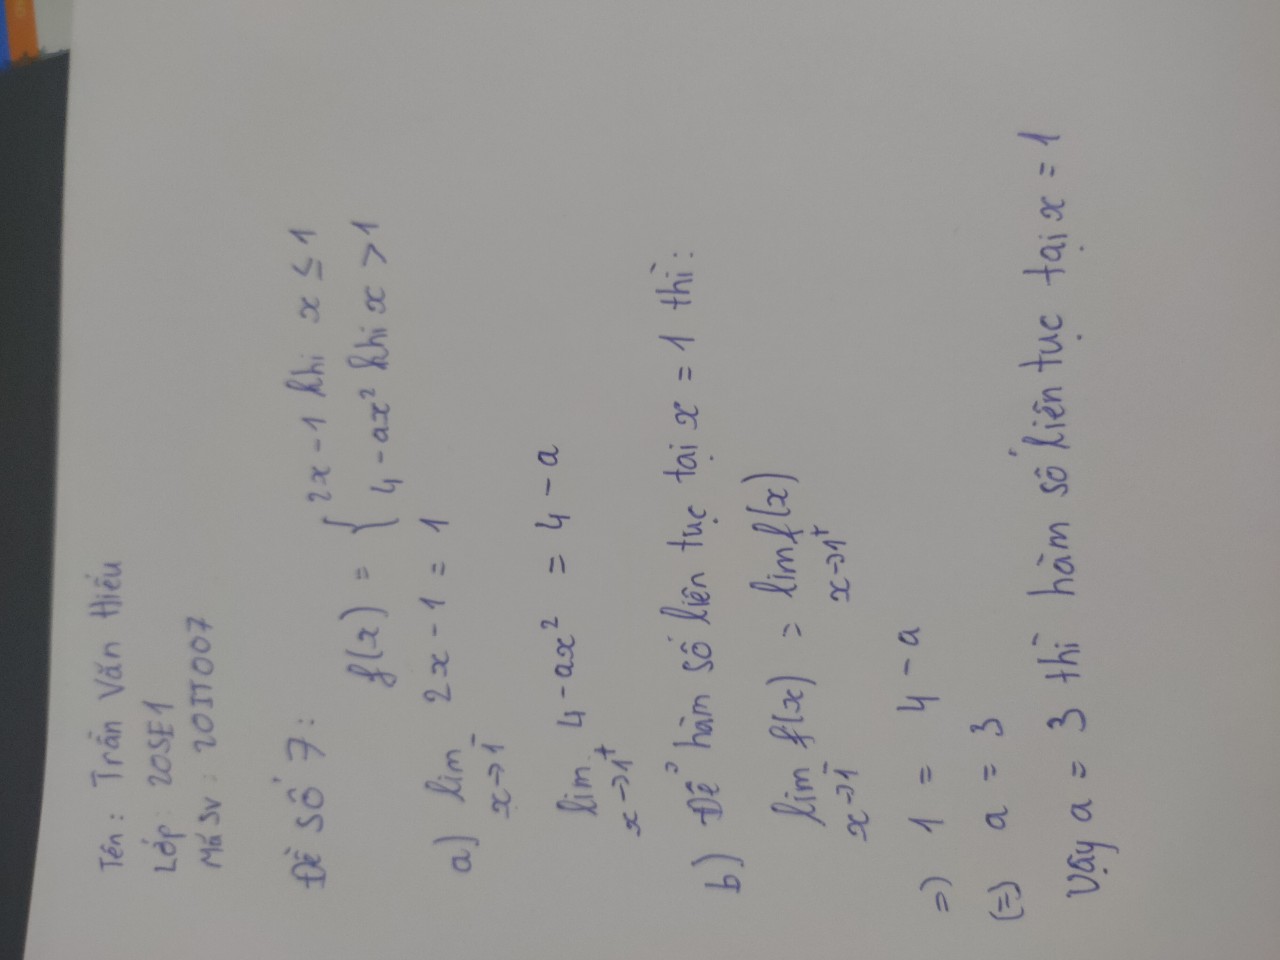 Tên : Trần Văn Hiếu
Lớp : 20SE1
Mã SV : 20IT007
Đề số 7 :
f(x) = { 2x - 1 khi x ≤ 1
4 - ax² khi x > 1
a) lim 2x - 1 = 1
x → 1⁻
lim 4 - ax² = 4 - a
x → 1⁺
b) Để hàm số liên tục tại x = 1 thì :
lim f(x) = lim f(x)
x → 1⁻ x → 1⁺
=> 1 = 4 - a
(=) a = 3
Vậy a = 3 thì hàm số liên tục tại x = 1